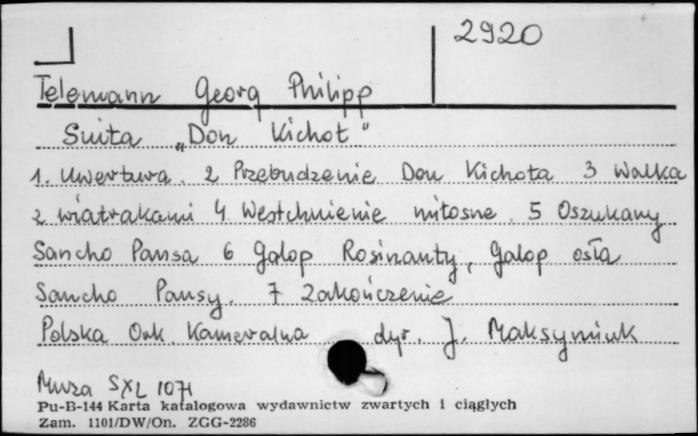 2920
Telemann Georg Philipp
Suita „Don Kichot"
1. Uwertura. 2 Przebudzenie Don Kichota 3 Walka
z wiatrakami 4 Westchnienie miłosne. 5 Oszukany
Sancho Pansa 6 Galop Rosinanty, Galop osła
Sancho Pansy. 7 Zakończenie
Polska Ork. Kameralna dyr. J. Maksymiuk
Muza SXL 1071
Pu-B-144 Karta katalogowa wydawnictw zwartych i ciągłych
Zam. 1101/DW/On. ZGG-2286